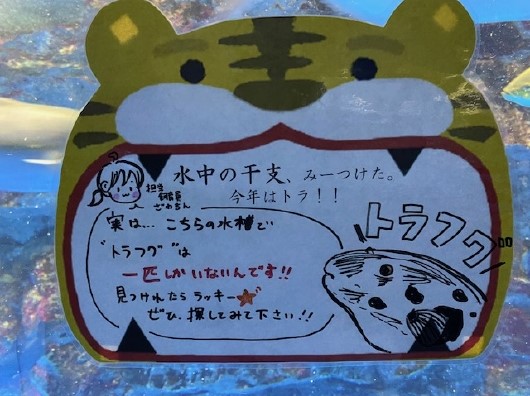 水中の干支、みーつけた。
今年はトラ！！
担当
飼育員
ざわちん
実は… こちらの水槽で
"トラフグ"は
一匹しかいないんです!!
見つけれたら ラッキー
ぜひ、探してみて下さい!!
トラフグ